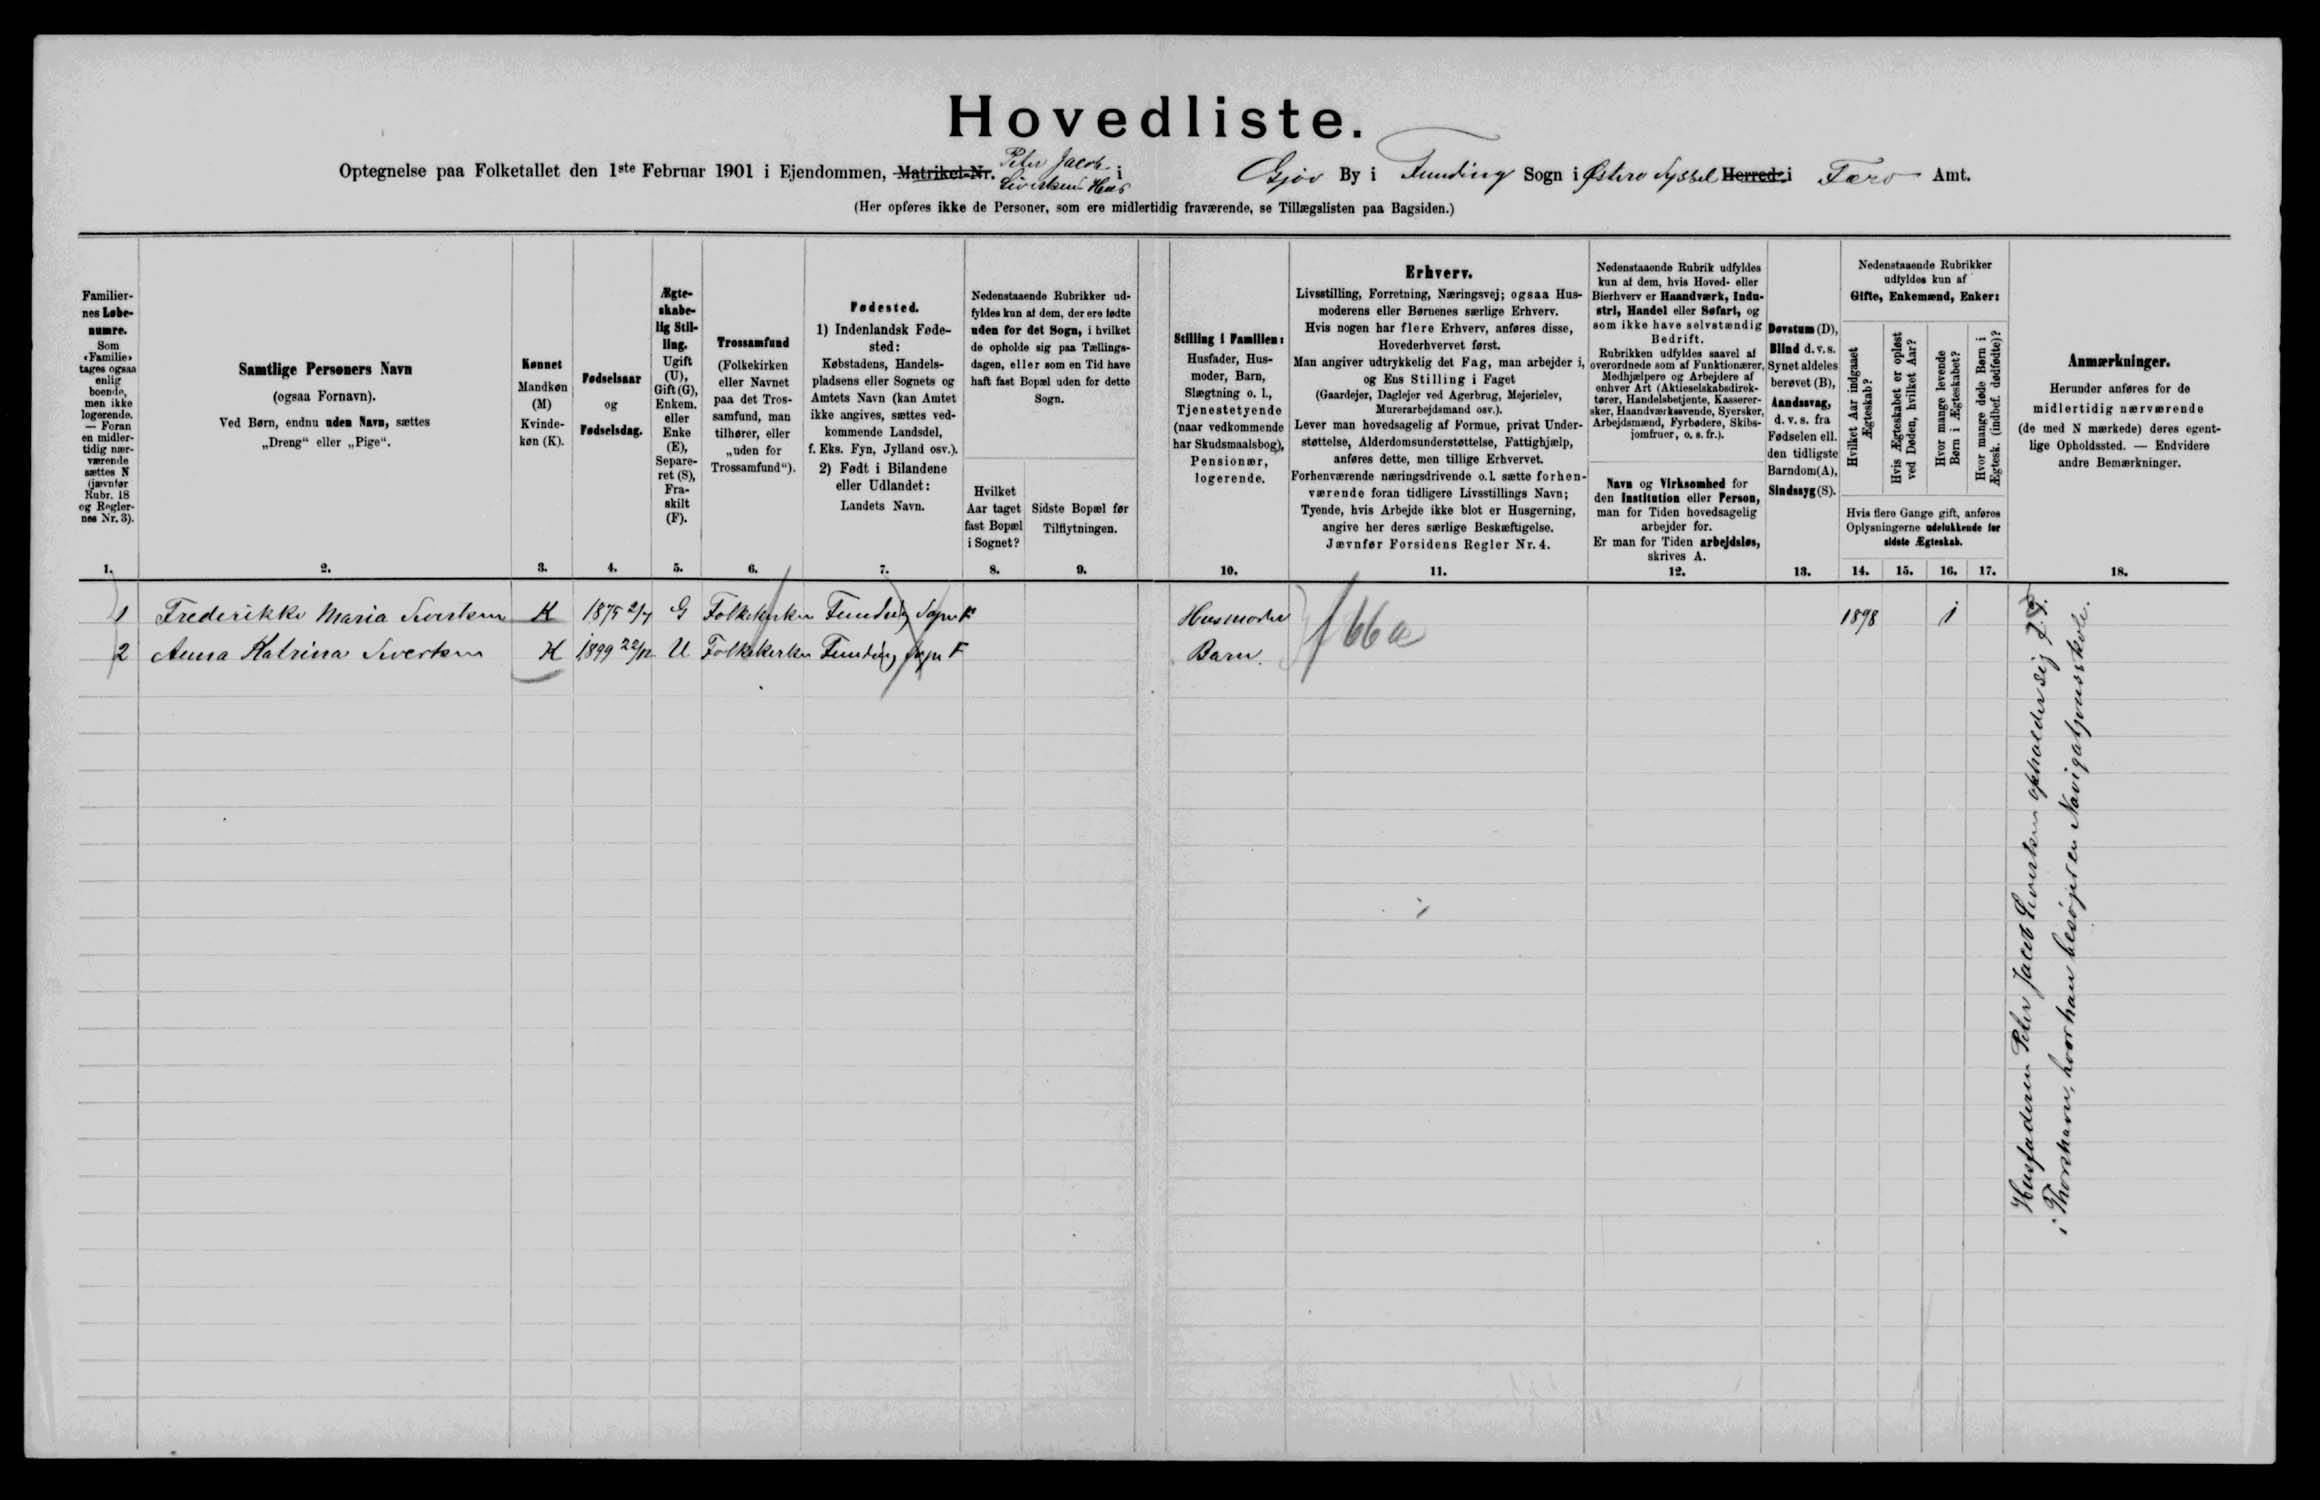 Hovedliste.
Optegnelse paa Folketallet den 1ste Februar 1901 i Ejendommen, Matrikel-Nr. Peter Jacob Sivertsens Hus i Gjov By i Funding Sogn i Østerø Syssel Herred i Færø Amt.
(Her opføres ikke de Personer, som ere midlertidig fraværende, se Tillægslisten paa Bagsiden.)
Familier-
nes Løbe-
numre.
Som
«Familie»
tages ogsaa
enlig
boende,
men ikke
logerende.
— Foran
en midler-
tidig nær-
værende
sættes N
(jævnfør
Rubr. 18
og Regler-
nes Nr. 3).
1.
Samtlige Personers Navn
(ogsaa Fornavn).
Ved Børn, endnu uden Navn, sættes
„Dreng“ eller „Pige“.
2.
Kønnet
Mandkøn
(M)
Kvinde-
køn (K).
3.
Fødselsaar
og
Fødselsdag.
4.
Ægte-
skabe-
lig Stil-
ling.
Ugift
(U),
Gift (G),
Enkem.
eller
Enke
(E),
Separe-
ret (S),
Fra-
skilt
(F).
5.
Trossamfund
(Folkekirken
eller Navnet
paa det Tros-
samfund, man
tilhører, eller
„uden for
Trossamfund“).
6.
Fødested.
1) Indenlandsk Føde-
sted:
Købstadens, Handels-
pladsens eller Sognets og
Amtets Navn (kan Amtet
ikke angives, sættes ved-
kommende Landsdel,
f. Eks. Fyn, Jylland osv.).
2) Født i Bilandene
eller Udlandet:
Landets Navn.
7.
Nedenstaaende Rubrikker ud-
fyldes kun af dem, der ere fødte
uden for det Sogn, i hvilket
de opholde sig paa Tællings-
dagen, eller som en Tid have
haft fast Bopæl uden for dette
Sogn.
Hvilket
Aar taget
fast Bopæl
i Sognet?
8.
Sidste Bopæl før
Tilflytningen.
9.
Stilling i Familien:
Husfader, Hus-
moder, Barn,
Slægtning o. l.,
Tjenestetyende
(naar vedkommende
har Skudsmaalsbog),
Pensionær,
logerende.
10.
Erhverv.
Livsstilling, Forretning, Næringsvej; ogsaa Hus-
moderens eller Børnenes særlige Erhverv.
Hvis nogen har flere Erhverv, anføres disse,
Hovederhvervet først.
Man angiver udtrykkelig det Fag, man arbejder i,
og Ens Stilling i Faget
(Gaardejer, Daglejer ved Agerbrug, Mejerielev,
Murerarbejdsmand osv.).
Lever man hovedsagelig af Formue, privat Under-
støttelse, Alderdomsunderstøttelse, Fattighjælp,
anføres dette, men tillige Erhvervet.
Forhenværende næringsdrivende o. l. sætte forhen-
værende foran tidligere Livsstillings Navn;
Tyende, hvis Arbejde ikke blot er Husgerning,
angive her deres særlige Beskæftigelse.
Jævnfør Forsidens Regler Nr. 4.
11.
Nedenstaaende Rubrik udfyldes
kun af dem, hvis Hoved- eller
Bierhverv er Haandværk, Indu-
stri, Handel eller Søfart, og
som ikke have selvstændig
Bedrift.
Rubrikken udfyldes saavel af
overordnede som af Funktionærer,
Medhjælpere og Arbejdere af
enhver Art (Aktieselskabsdirek-
tører, Handelsbetjente, Kasserer-
sker, Haandværkssvende, Syersker,
Arbejdsmænd, Fyrbødere, Skibs-
jomfruer, o. s. fr.).
Navn og Virksomhed for
den Institution eller Person,
man for Tiden hovedsagelig
arbejder for.
Er man for Tiden arbejdsløs,
skrives A.
12.
Døvstum (D),
Blind d. v. s.
Synet aldeles
berøvet (B),
Aandssvag,
d. v. s. fra
Fødselen ell.
den tidligste
Barndom (A),
Sindssyg (S).
13.
Nedenstaaende Rubrikker
udfyldes kun af
Gifte, Enkemænd, Enker:
Hvilket Aar indgaaet
Ægteskab?
Hvis Ægteskabet er opløst
ved Døden, hvilket Aar?
Hvor mange levende
Børn i Ægteskabet?
Hvor mange døde Børn i
Ægtesk. (indbef. dødfødte)?
Hvis flere Gange gift, anføres
Oplysningerne udelukkende for
sidste Ægteskab.
14. 15. 16. 17.
Anmærkninger.
Herunder anføres for de
midlertidig nærværende
(de med N mærkede) deres egent-
lige Opholdssted. — Endvidere
andre Bemærkninger.
18.
1 Frederikke Maria Sivertsen K 1875 2/7 G Folkekirken Funding Sogn F Husmoder 1898 1
2 Anna Katrina Sivertsen K 1899 22/12 U Folkekirken Funding Sogn F Barn.
66a
Husfaderen Peter Jacob Sivertsen opholder sig p. t.
i Thorshavn, hvor han besøger en Navigationsskole.